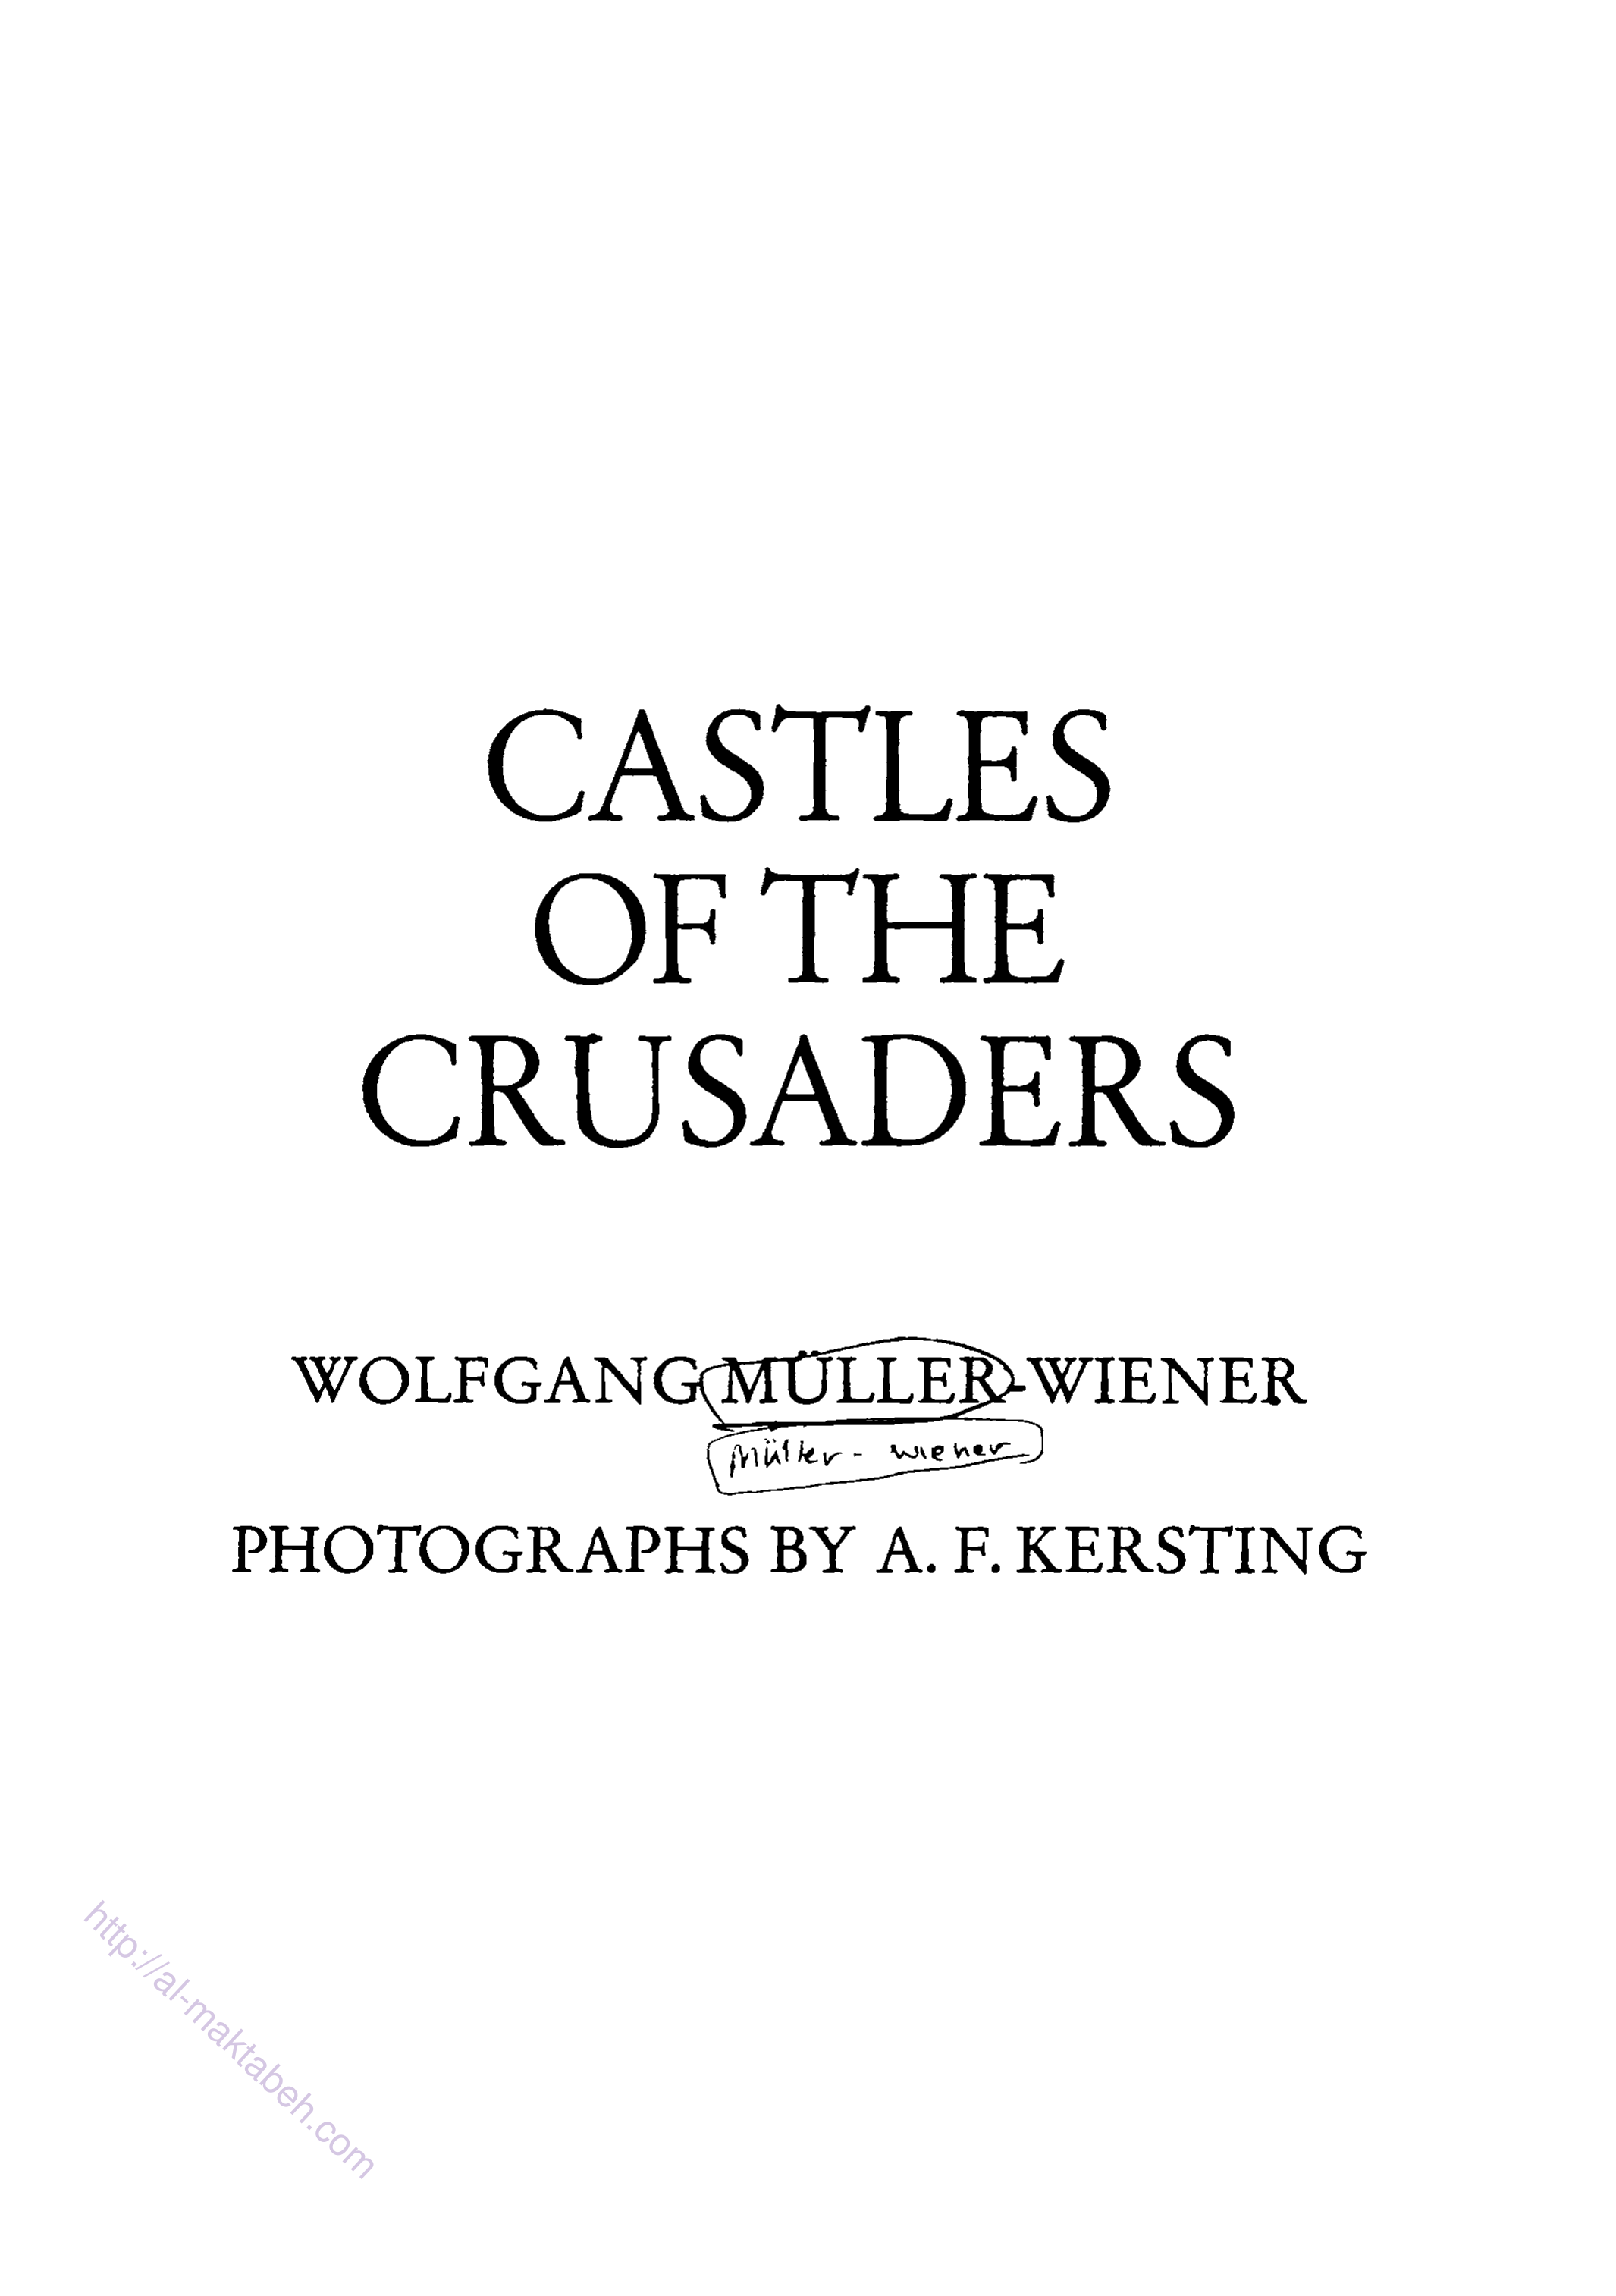 CASTLES
OF THE
CRUSADERS
WOLFGANG MÜLLER-WIENER
Müller - wiener
PHOTOGRAPHS BY A. F. KERSTING
http://al-maktabeh.com